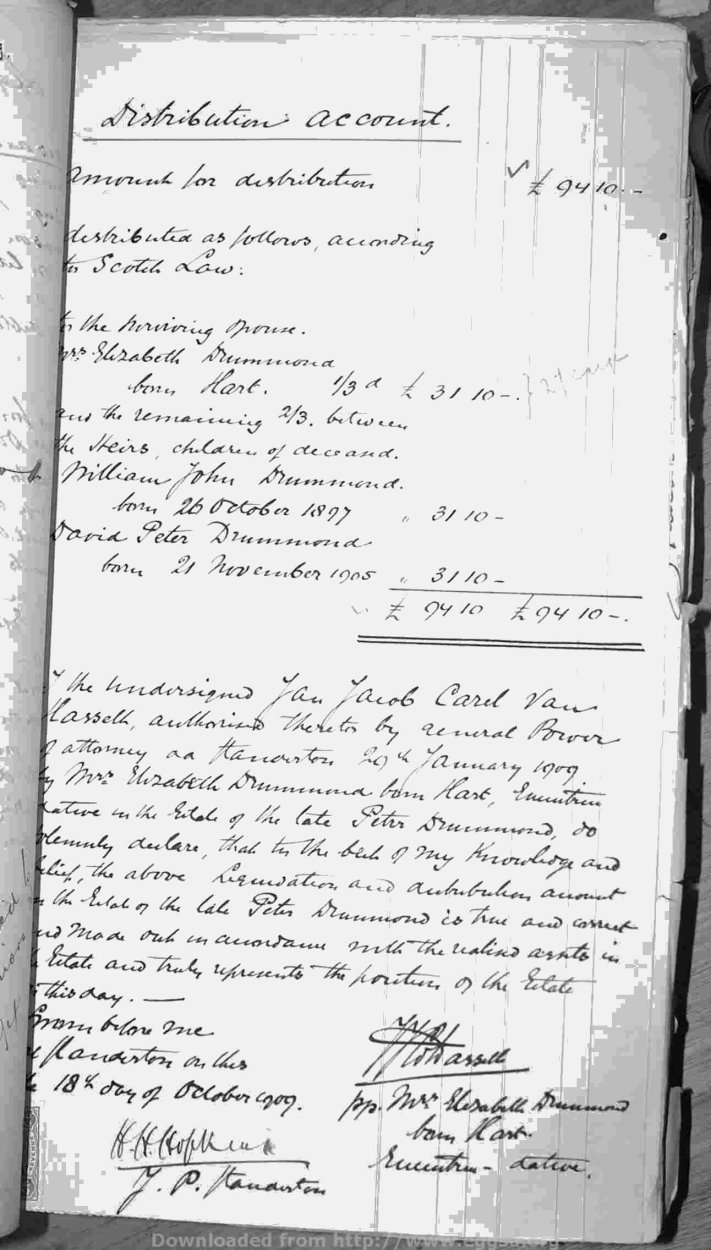 Distribution Account.
Amount for distribution √ £ 94 10 --
distributed as follows, according
to Scotch Law:
to the surviving spouse.
Mrs Elizabeth Drummond
born Hart. 1/3 d £ 31 10 -.
and the remaining 2/3. between
the Heirs, children of deceased.
William John Drummond.
born 26 October 1897 " 31 10 -
David Peter Drummond
born 21 November 1905 " 31 10 -
£ 94 10 £ 94 10 -.
I the undersigned Jan Jacob Carel Van
Hasselt, authorised thereto by general Power
of attorney dd Standerton 29th January 1909
by Mrs Elizabeth Drummond born Hart, Executrix
dative in the Estate of the late Peter Drummond, do
solemnly declare, that to the best of my Knowledge and
belief, the above Liquidation and distribution account
in the Estate of the late Peter Drummond is true and correct
and made out in accordance with the realised assets in
Estate and truly represents the position of the Estate
this day. —
Sworn before me
Standerton on this
18th day of October 1909.
H. H. Hopkins
J. P. Standerton
JJC v Hasselt
pp. Mrs Elizabeth Drummond
born Hart.
Executrix - dative.
Downloaded from http://www.eggsa.org